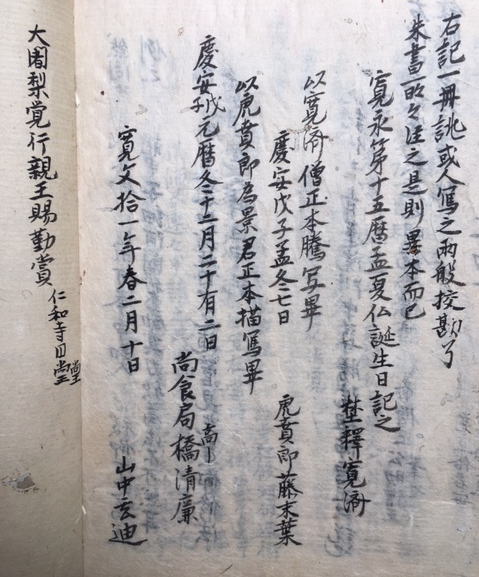 右記一冊誂或人写之両般挍勘了
朱書一昨々注之是則異本而已
寛永第十五暦孟夏仏誕生日記之
埜釋寛済
以寛済僧正本謄写畢
慶安戊子孟冬七日
虎賁郎藤末葉
以虎賁郎為景君正本描写畢
慶安戊子元暦冬十二月二十有二日
尚食局橋清廉
寛文拾一年春二月十日
山中玄迪
大阇梨覚行親王賜勤賞
仁和寺